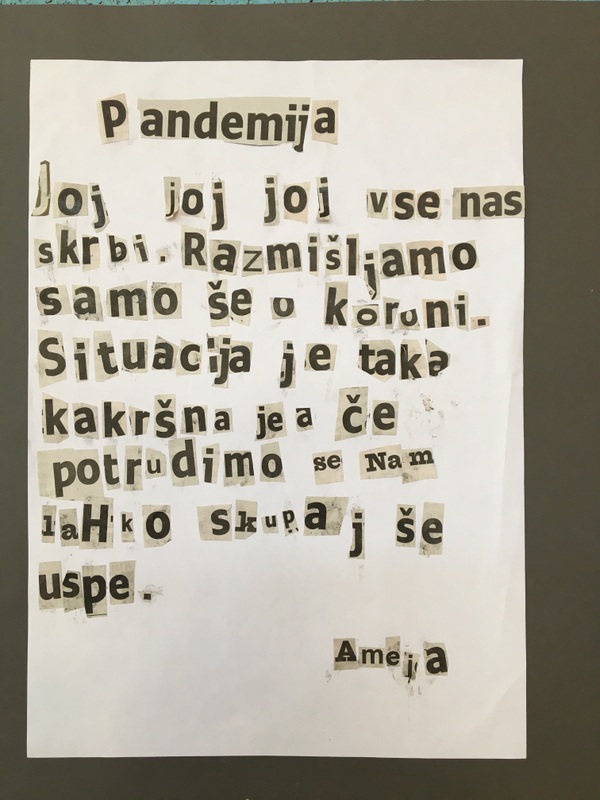 Pandemija
Joj joj joj vse nas
skrbi. Razmišljamo
samo še o koruni.
Situacija je taka
kakršna je a če
potrudimo se Nam
laHko skupaj še
uspe.
Ameja